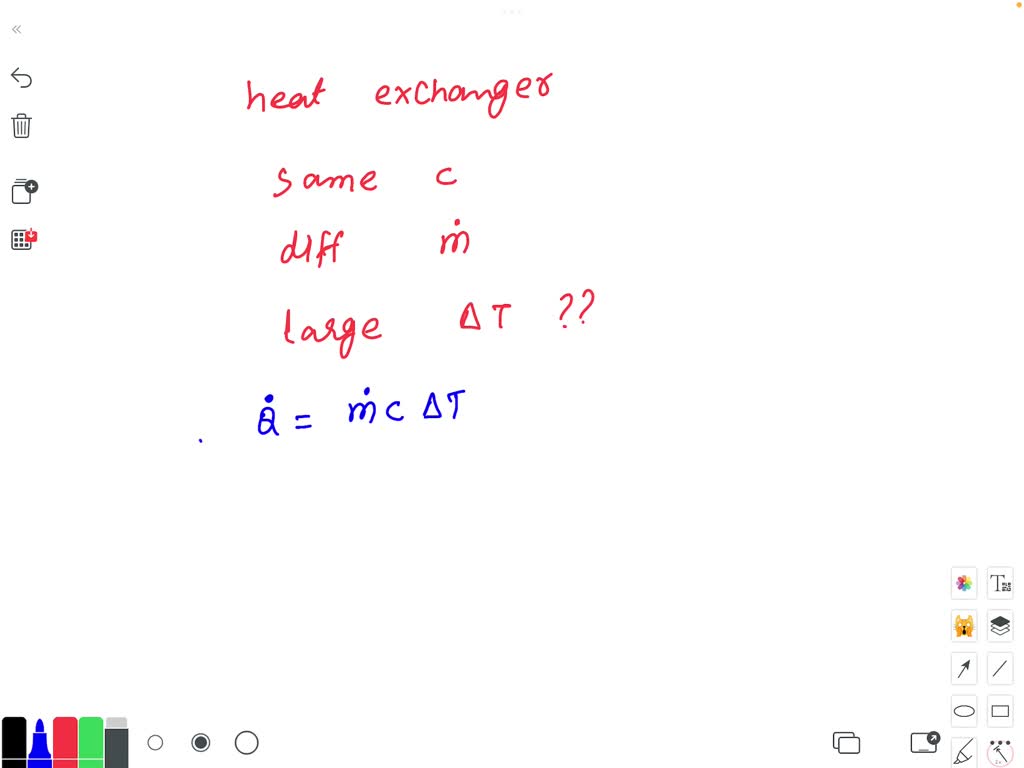 heat exchanger
same c
diff ṁ
large ΔT ??
Q̇ = ṁc ΔT